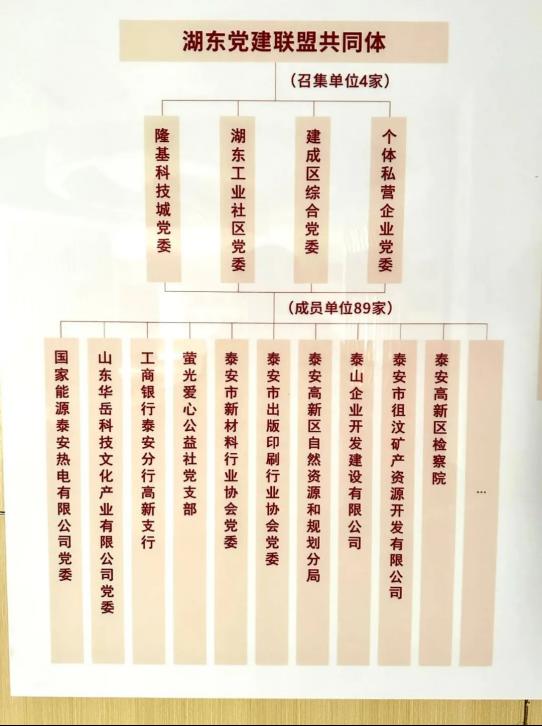 湖东党建联盟共同体
（召集单位4家）
隆基科技城党委
湖东工业社区党委
建成区综合党委
个体私营企业党委
（成员单位89家）
国家能源泰安热电有限公司党委
山东华岳科技文化产业有限公司党委
工商银行泰安分行高新支行
萤光爱心公益社党支部
泰安市新材料行业协会党委
泰安市出版印刷行业协会党委
泰安高新区自然资源和规划分局
泰山企业开发建设有限公司
泰安市徂汶矿产资源开发有限公司
泰安高新区检察院
...